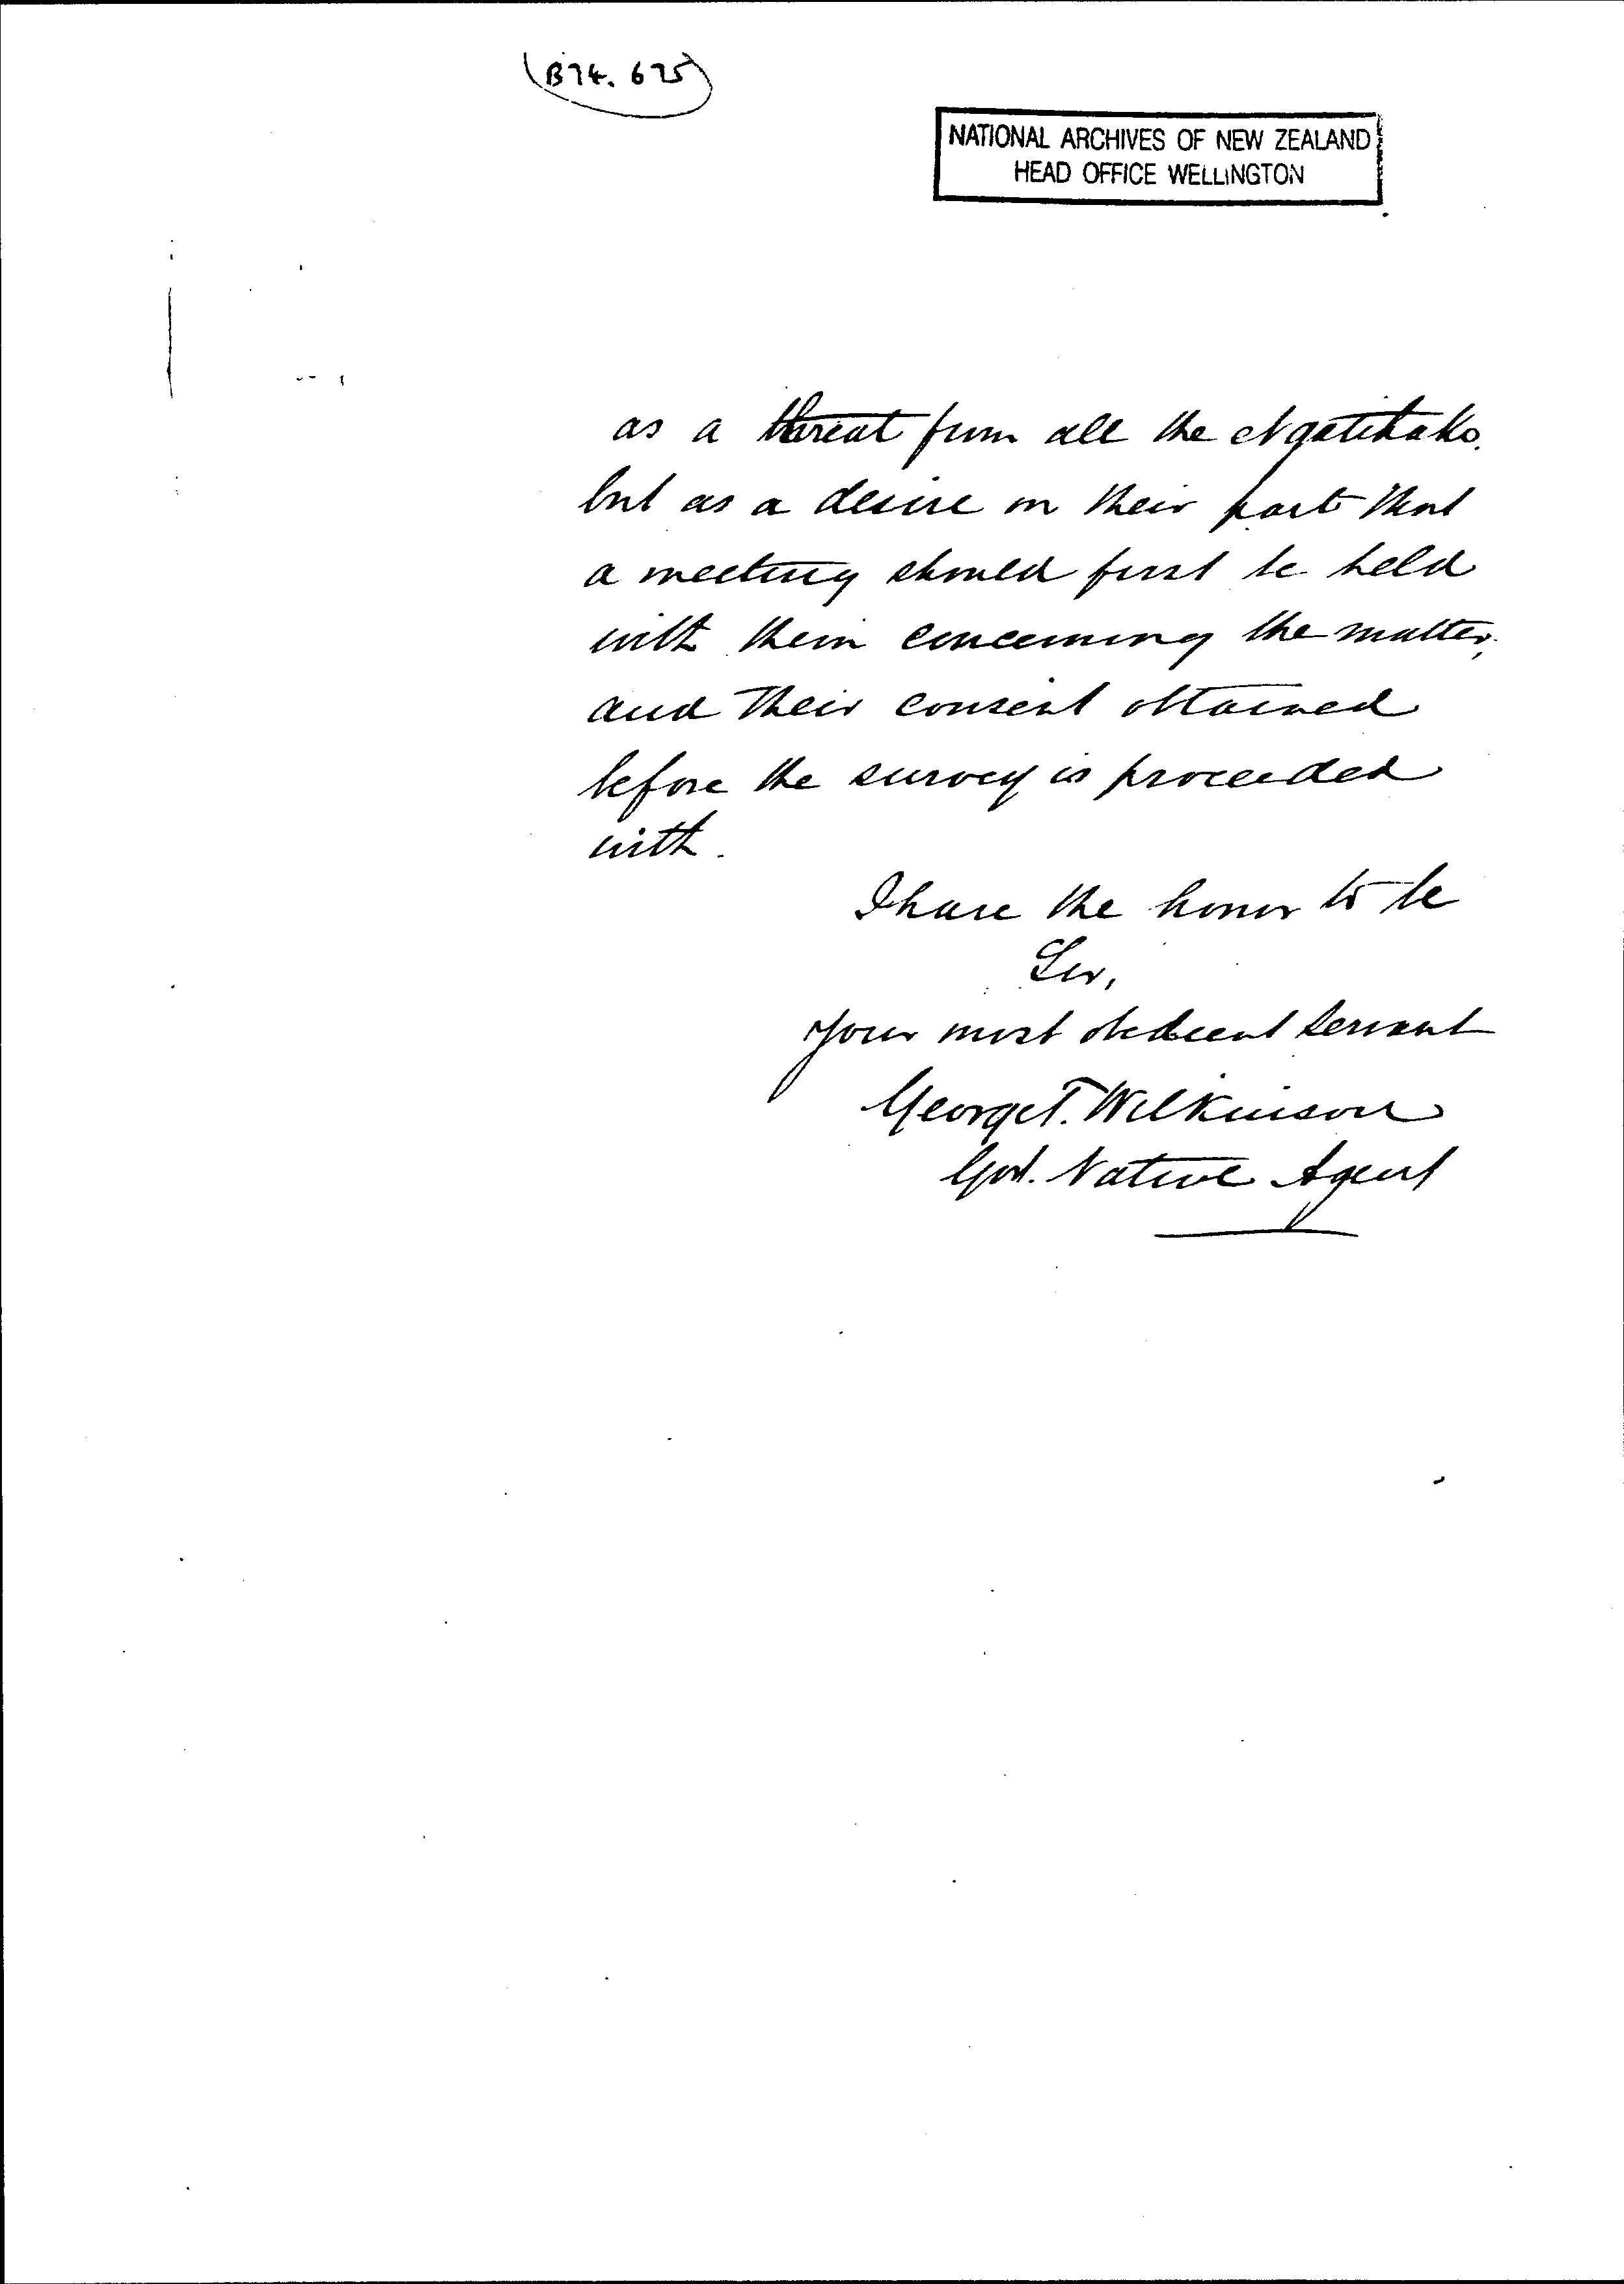 (B74. 675)
NATIONAL ARCHIVES OF NEW ZEALAND
HEAD OFFICE WELLINGTON
as a threat from all the Ngatihako.
but as a desire on their part that
a meeting should first be held
with them concerning the matter,
and their consent obtained
before the survey is proceeded
with.
I have the honor to be
Sir,
Your most obedient servant
George T. Wilkinson
Govt. Native Agent